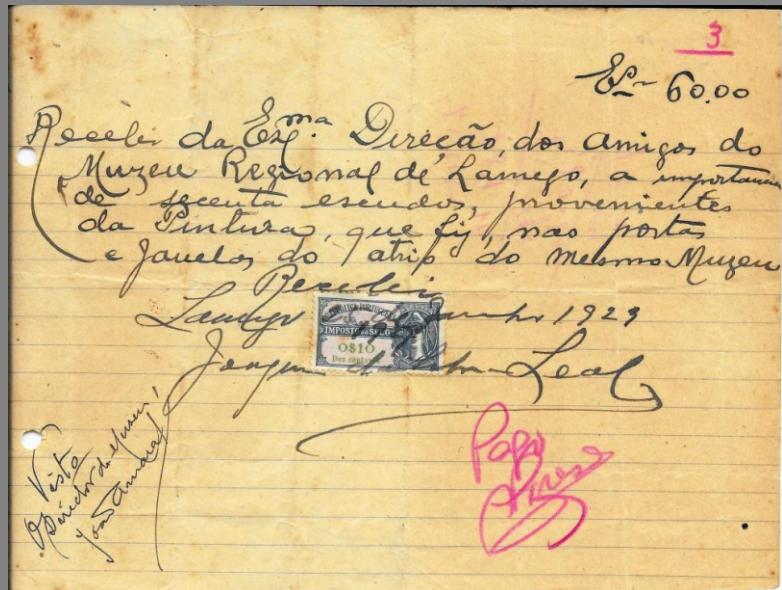 3
Esc 60.00
Recebi da Exma Direcão, dos amigos do
Muzeu Regional de Lamego, a importancia
de secenta escudos, provenientes
da Pintura, que fiz, nas portas
e janelas do atrio do mesmo Muzeu
Recebi
Lamego 1929
IMPOSTO DO SELO
0$10
Dez centavos
Leal
Visto
O Director do Museu,
João Amaral
Pago